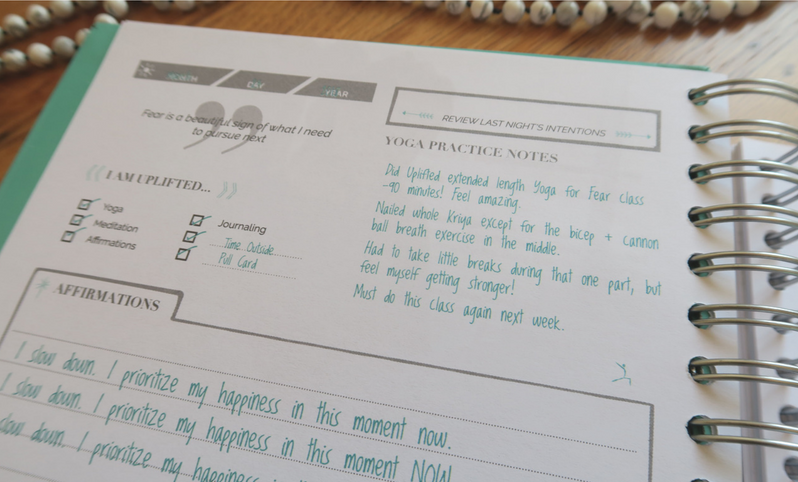 MONTH DAY YEAR
Fear is a beautiful sign of what I need
to pursue next
I AM UPLIFTED...
Yoga
Meditation
Affirmations
Journaling
Time Outside
Pull Card
REVIEW LAST NIGHT'S INTENTIONS
YOGA PRACTICE NOTES
Did Uplifted extended length Yoga for Fear class
~90 minutes! Feel amazing.
Nailed whole Kriya except for the bicep + cannon
ball breath exercise in the middle.
Had to take little breaks during that one part, but
feel myself getting stronger!
Must do this class again next week.
AFFIRMATIONS
I slow down. I prioritize my happiness in this moment now.
I slow down. I prioritize my happiness in this moment NOW
slow down. I prioritize my happiness